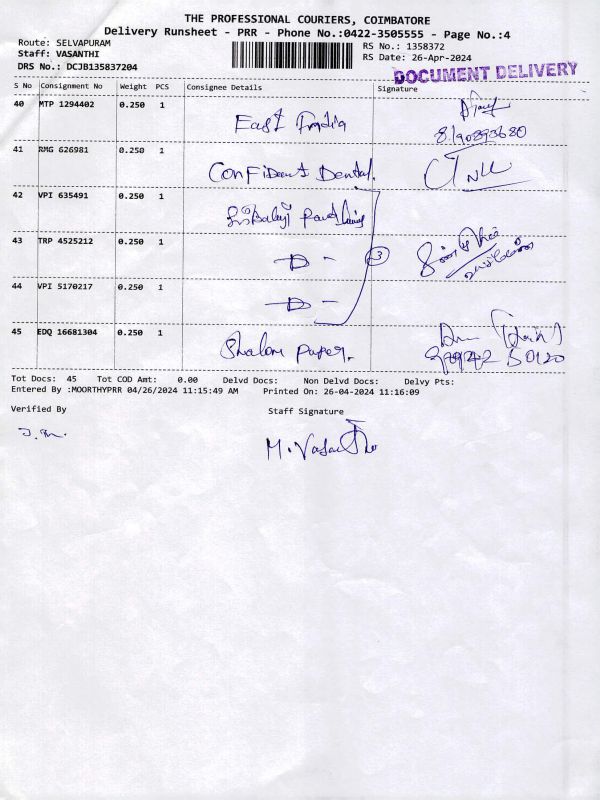 THE PROFESSIONAL COURIERS, COIMBATORE
Delivery Runsheet - PRR - Phone No.:0422-3505555 - Page No.:4
Route: SELVAPURAM
Staff: VASANTHI
DRS No.: DCJB135837204
RS No.: 1358372
RS Date: 26-Apr-2024
DOCUMENT DELIVERY
S No Consignment No Weight PCS Consignee Details Signature
40 MTP 1294402 0.250 1 East India
41 RMG 626981 0.250 1 Confident Dental.
42 VPI 635491 0.250 1 Balaji
43 TRP 4525212 0.250 1 - D - 3
44 VPI 5170217 0.250 1 - D -
45 EDQ 16681304 0.250 1 Shalom paper.
Tot Docs: 45 Tot COD Amt: 0.00 Delvd Docs: Non Delvd Docs: Delvy Pts:
Entered By :MOORTHYPRR 04/26/2024 11:15:49 AM Printed On: 26-04-2024 11:16:09
Verified By Staff Signature
M. Vasanthi